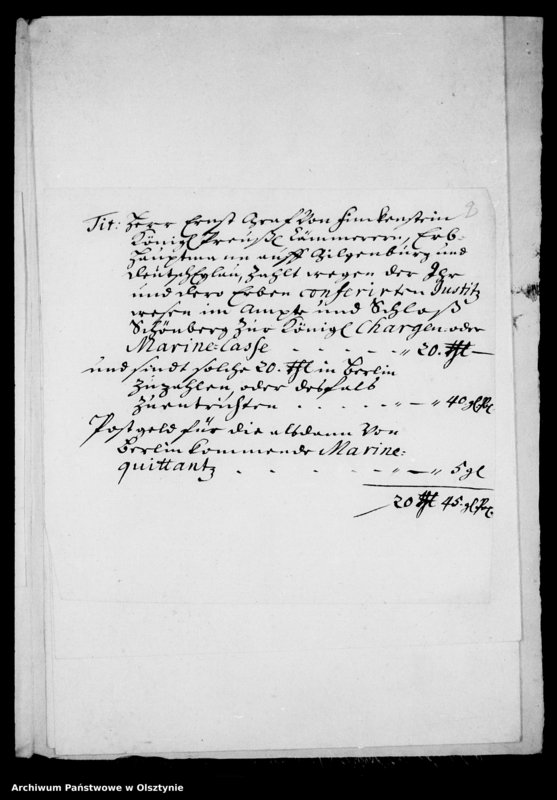 Tit: Herr Ernst Graf Von Finckenstein
Königl Preußl Cämmerern, Erb-
Hauptmann auff Gilgenburg und
Deutsch Eylau, Zahlt wegen der Ihr
und dero Erben conferirten Justitz
wesen im Ampte und Schloß
Schönberg Zur Königl Chargen oder
Marine-Casse - - - - - " 20. thl -
und sindt solche 20. thl in Berlin
Zuzahlen, oder desfals
Zuentrichten . . . . . " - " 40 gl
Postgeld für die alsdann Von
Berlin kommende Marine=
quittantz . . . . . . " - " 5 gl
20 thl 45 gl
Archiwum Państwowe w Olsztynie